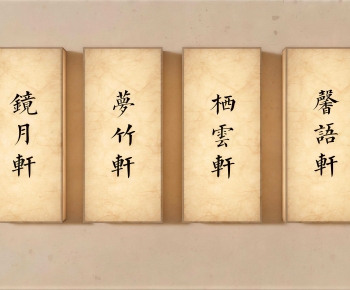 鏡月軒
夢竹軒
栖雲軒
馨語軒